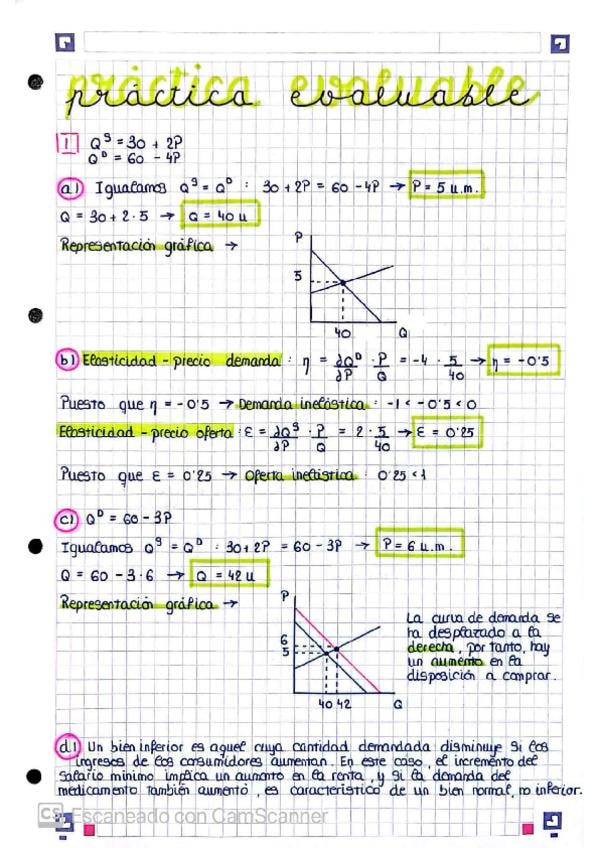 práctica evaluable
1 Qˢ = 30 + 2P
Qᴰ = 60 - 4P
a) Igualamos Qˢ = Qᴰ : 30 + 2P = 60 - 4P → P = 5 u.m.
Q = 30 + 2·5 → Q = 40 u
Representación gráfica →
P
5
40 Q
b) Elasticidad - precio demanda : η = ∂Qᴰ/∂P · P/Q = -4 · 5/40 → η = -0'5
Puesto que η = -0'5 → Demanda inelástica : -1 < -0'5 < 0
Elasticidad - precio oferta : ε = ∂Qˢ/∂P · P/Q = 2 · 5/40 → ε = 0'25
Puesto que ε = 0'25 → Oferta inelástica : 0'25 < 1
c) Qᴰ = 60 - 3P
Igualamos Qˢ = Qᴰ : 30 + 2P = 60 - 3P → P = 6 u.m.
Q = 60 - 3·6 → Q = 42 u
Representación gráfica →
P
6
5
40 42 Q
La curva de demanda se
ha desplazado a la
derecha, por tanto, hay
un aumento en la
disposición a comprar.
d) Un bien inferior es aquel cuya cantidad demandada disminuye si los
ingresos de los consumidores aumentan. En este caso, el incremento del
salario mínimo implica un aumento en la renta, y si la demanda del
medicamento también aumentó, es característico de un bien normal, no inferior.
CS Escaneado con CamScanner